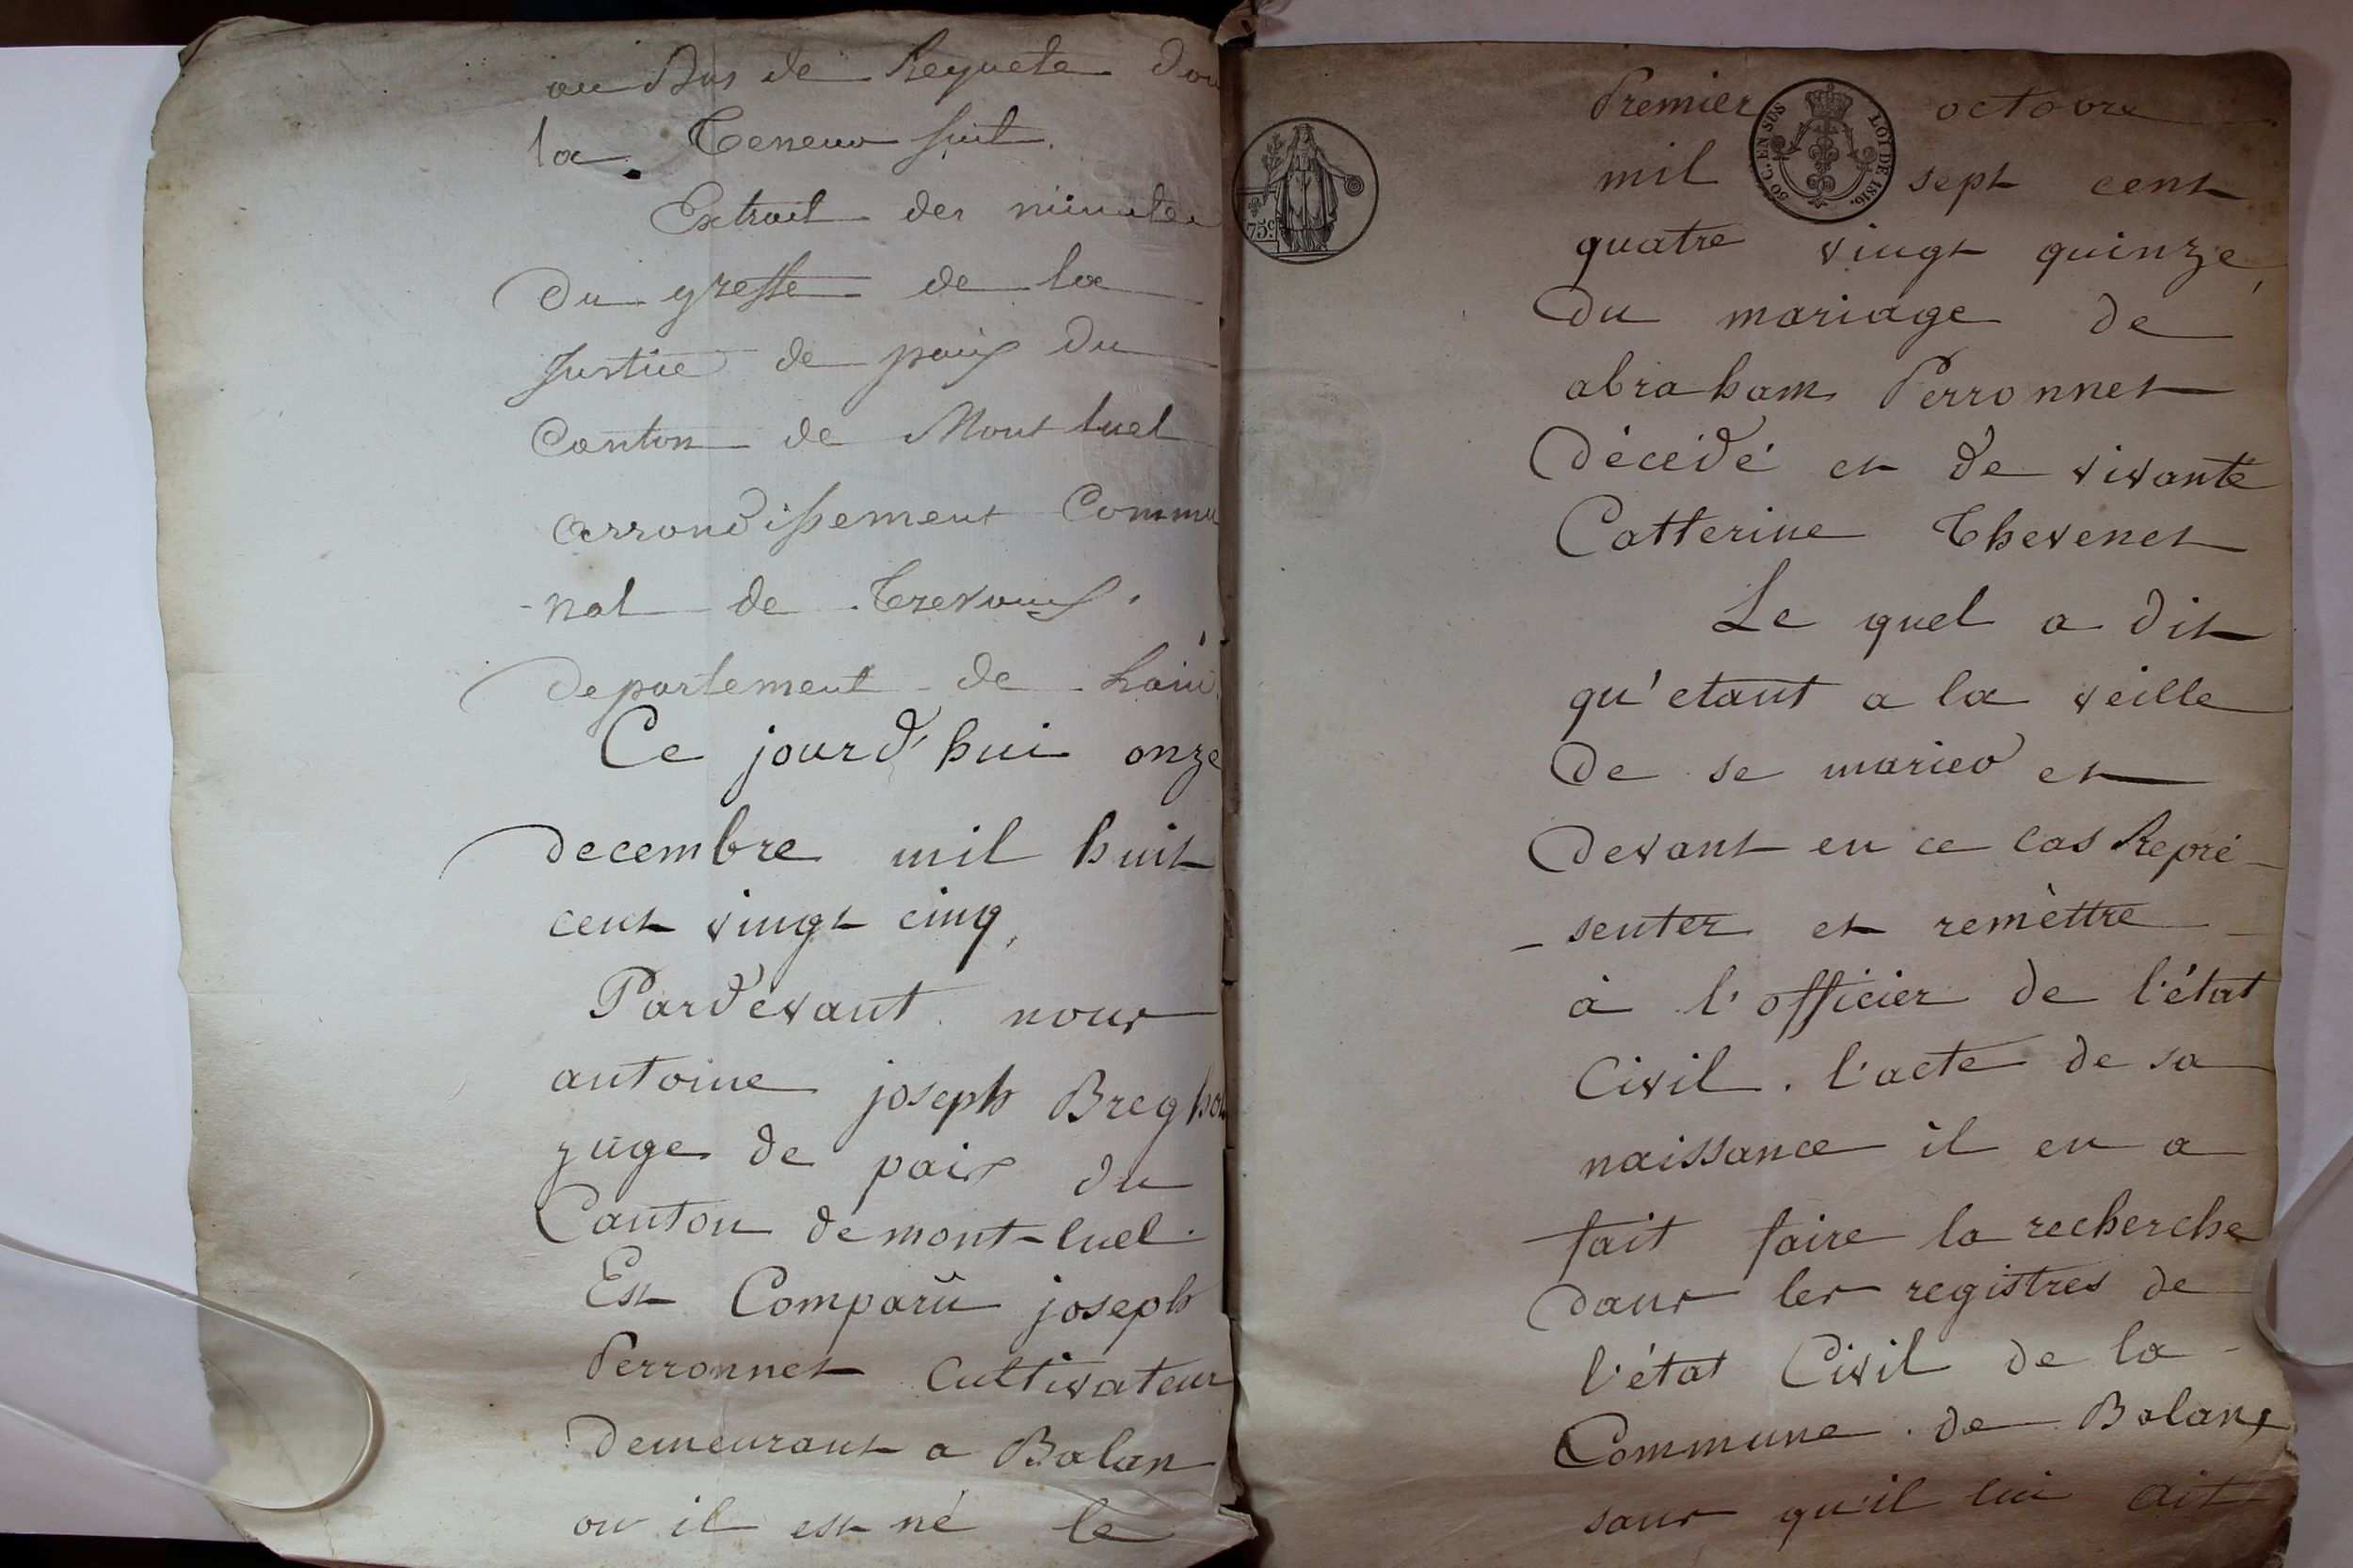 au Bas de Requete don
la Teneur suit.
Extrait des minutes
du greffe de la
Justice de paix du
Canton de Montluel
arrondissement Commu
-nal de Trevoux.
departement de Lain.
Ce jourd'hui onze
decembre mil huit
cent vingt cinq,
Pardevant nous
antoine joseph Bregho
juge de paix du
Canton de mont-luel.
Est Comparü joseph
Perronnet Cultivateur
demeurant a Balan
ou il est né le
75c.
Premier octobre
50 C. EN SUS LOI DE 1816.
mil sept cent
quatre vingt quinze,
du mariage de
abraham Perronnet
décédé et de vivante
Catterine Thevenet
Le quel a dit
qu'etant a la veille
de se marier et
devant en ce cas Repré-
-senter et remèttre
à l'officier de l'état
Civil. l'acte de sa
naissance il en a
fait faire la recherche
dans les registres de
l'état Civil de la
Commune de Balan,
sans qu'il lui ait